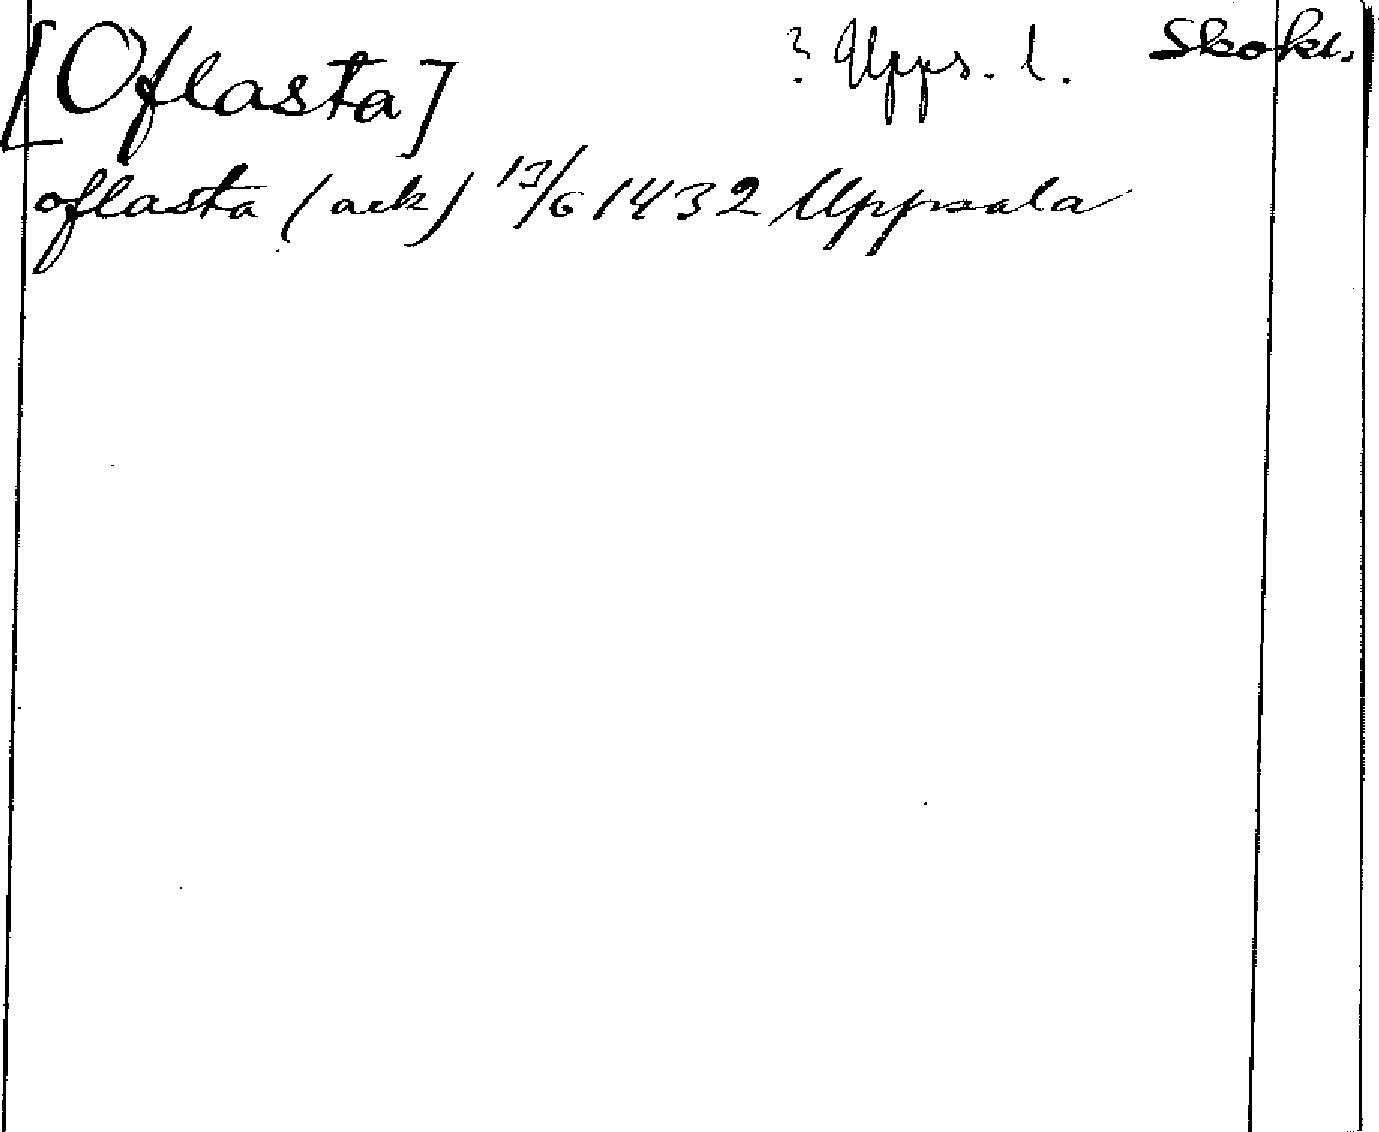 [Oflasta] ? Upps. l. Skokl.
oflasta (ack) 13/6 1432 Uppsala